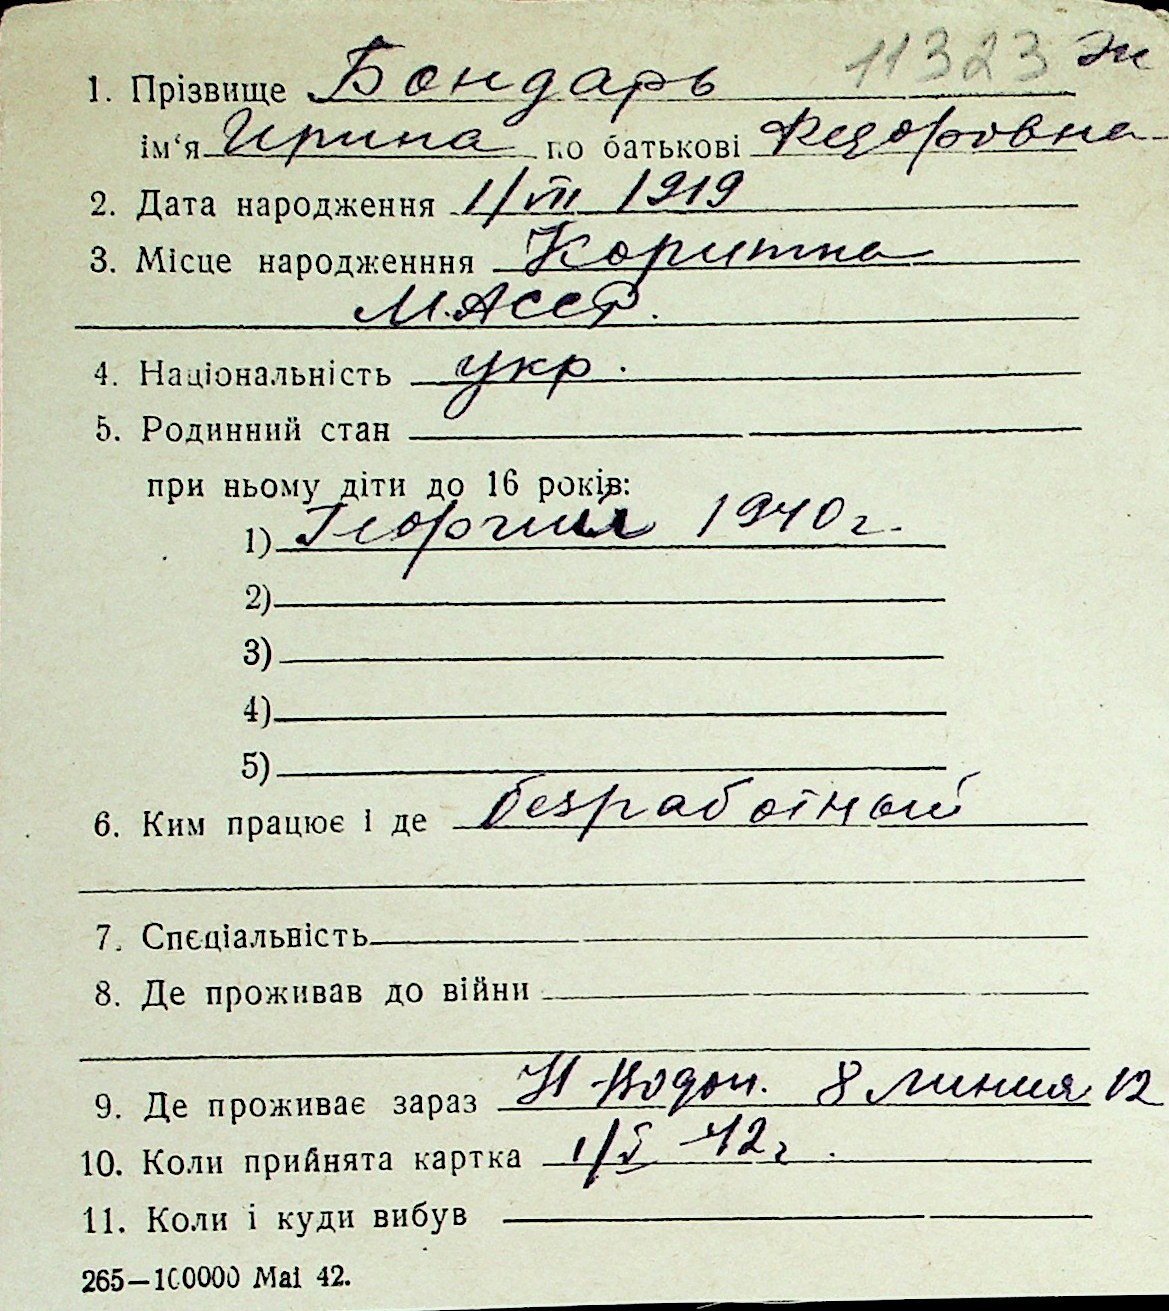 11323 эк
1. Прізвище Бондарь
ім‘я Ирина по батькові Федоровна
2. Дата народження 1/VII 1919
3. Місце народженння Коритна
М.АССР.
4. Національність укр.
5. Родинний стан
при ньому діти до 16 років:
1) Георгий 1940г.
2)
3)
4)
5)
6. Ким працює і де безработный
7. Спеціальність
8. Де проживав до війни
9. Де проживає зараз 8 линия 12
10. Коли прийнята картка 1/X 42г.
11. Коли і куди вибув
265—100000 Mai 42.